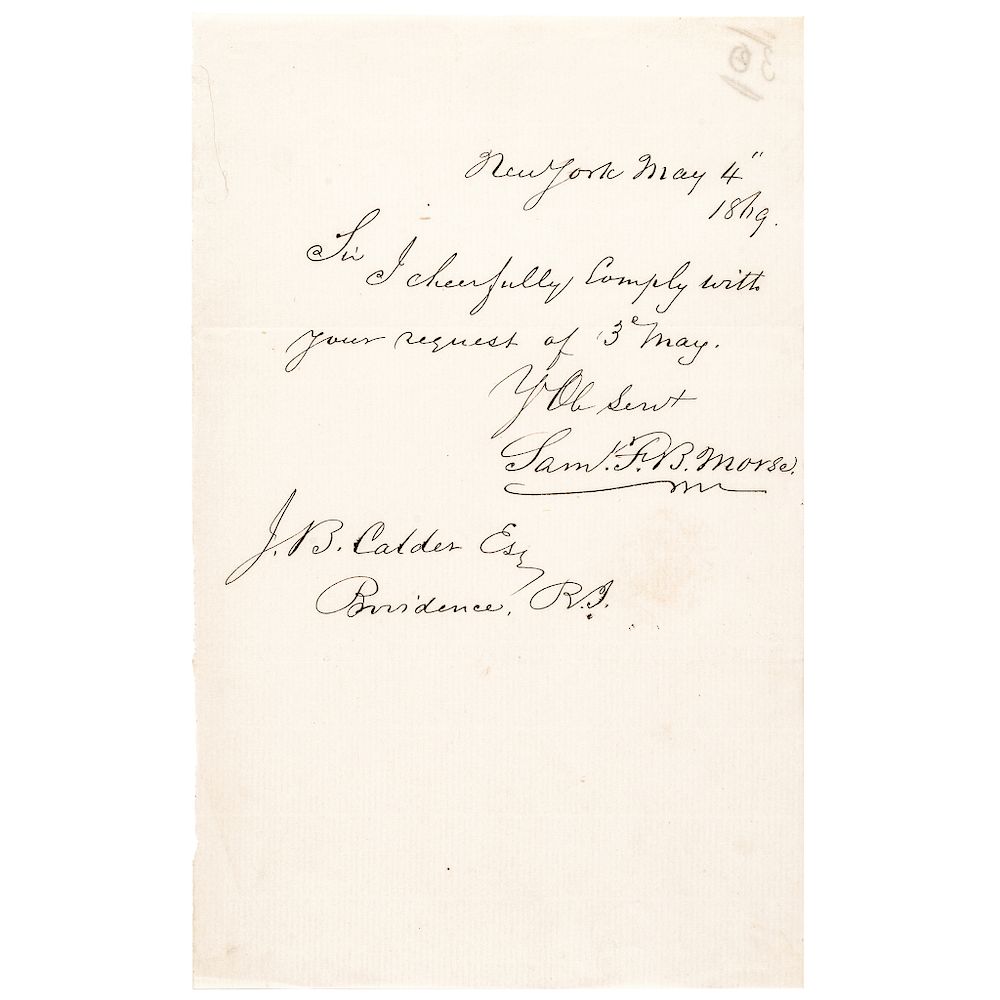 New York May 4"
1869.
Sir
I cheerfully Comply with
your request of 3d May.
Y Ob Servt
Saml. F. B. Morse.
J. B. Calder Esq
Providence, R.I.